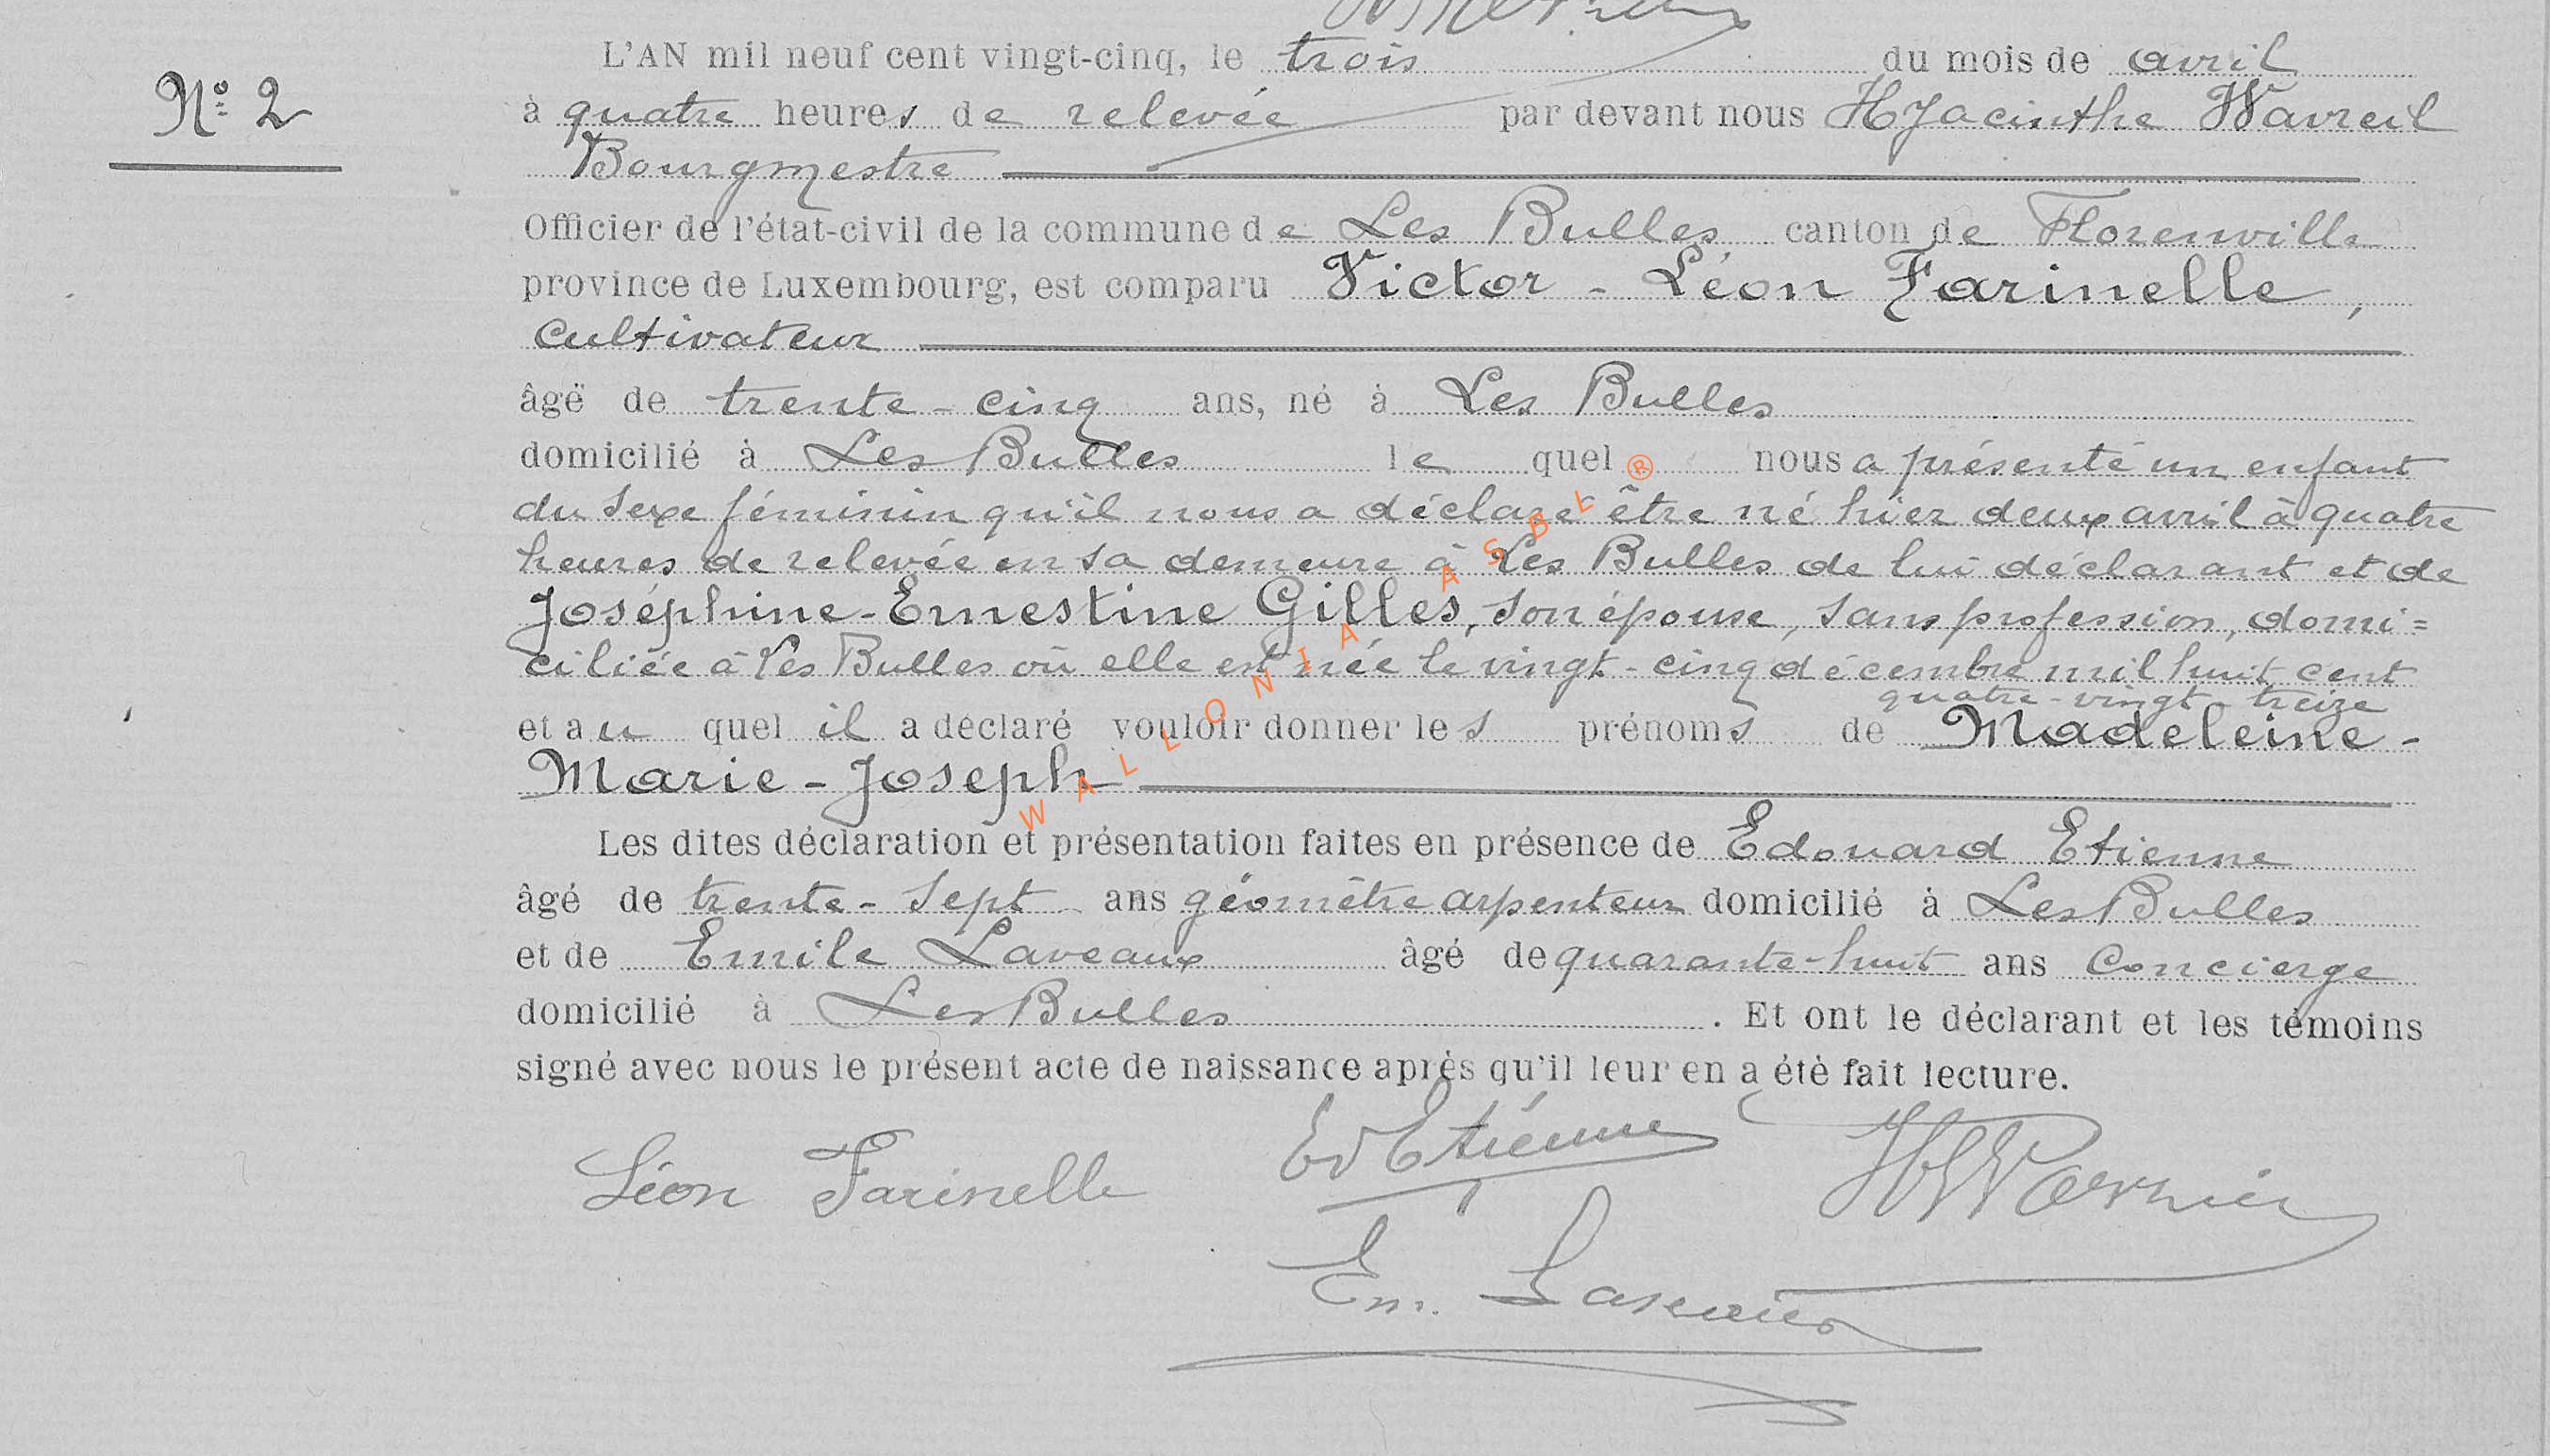 L'AN mil neuf cent vingt-cinq, le trois du mois de avril
N° 2
à quatre heures de relevée par devant nous Hyacinthe Wavreil
Bourgmestre
Officier de l'état-civil de la commune de Les Bulles canton de Florenville
province de Luxembourg, est comparu Victor - Léon Farinelle,
cultivateur
âgé de trente-cinq ans, né à Les Bulles
domicilié à Les Bulles le quel nous a présenté un enfant
du sexe féminin qu'il nous a déclaré être né hier deux avril à quatre
heures de relevée en sa demeure à Les Bulles de lui déclarant et de
Joséphine-Ernestine Gilles, son épouse, sans profession, domi=
ciliée à Les Bulles où elle est née le vingt-cinq décembre mil huit cent
quatre-vingt-treize
et au quel il a déclaré vouloir donner les prénoms de Madeleine-
Marie-Joseph
Les dites déclaration et présentation faites en présence de Edouard Etienne
âgé de trente-sept ans géomètre arpenteur domicilié à Les Bulles
et de Emile Laveaux âgé de quarante-huit ans Concierge
domicilié à Les Bulles. Et ont le déclarant et les témoins
signé avec nous le présent acte de naissance après qu'il leur en a été fait lecture.
Léon Farinelle Ed Etienne
Em.
WALLONIA ASBL ®